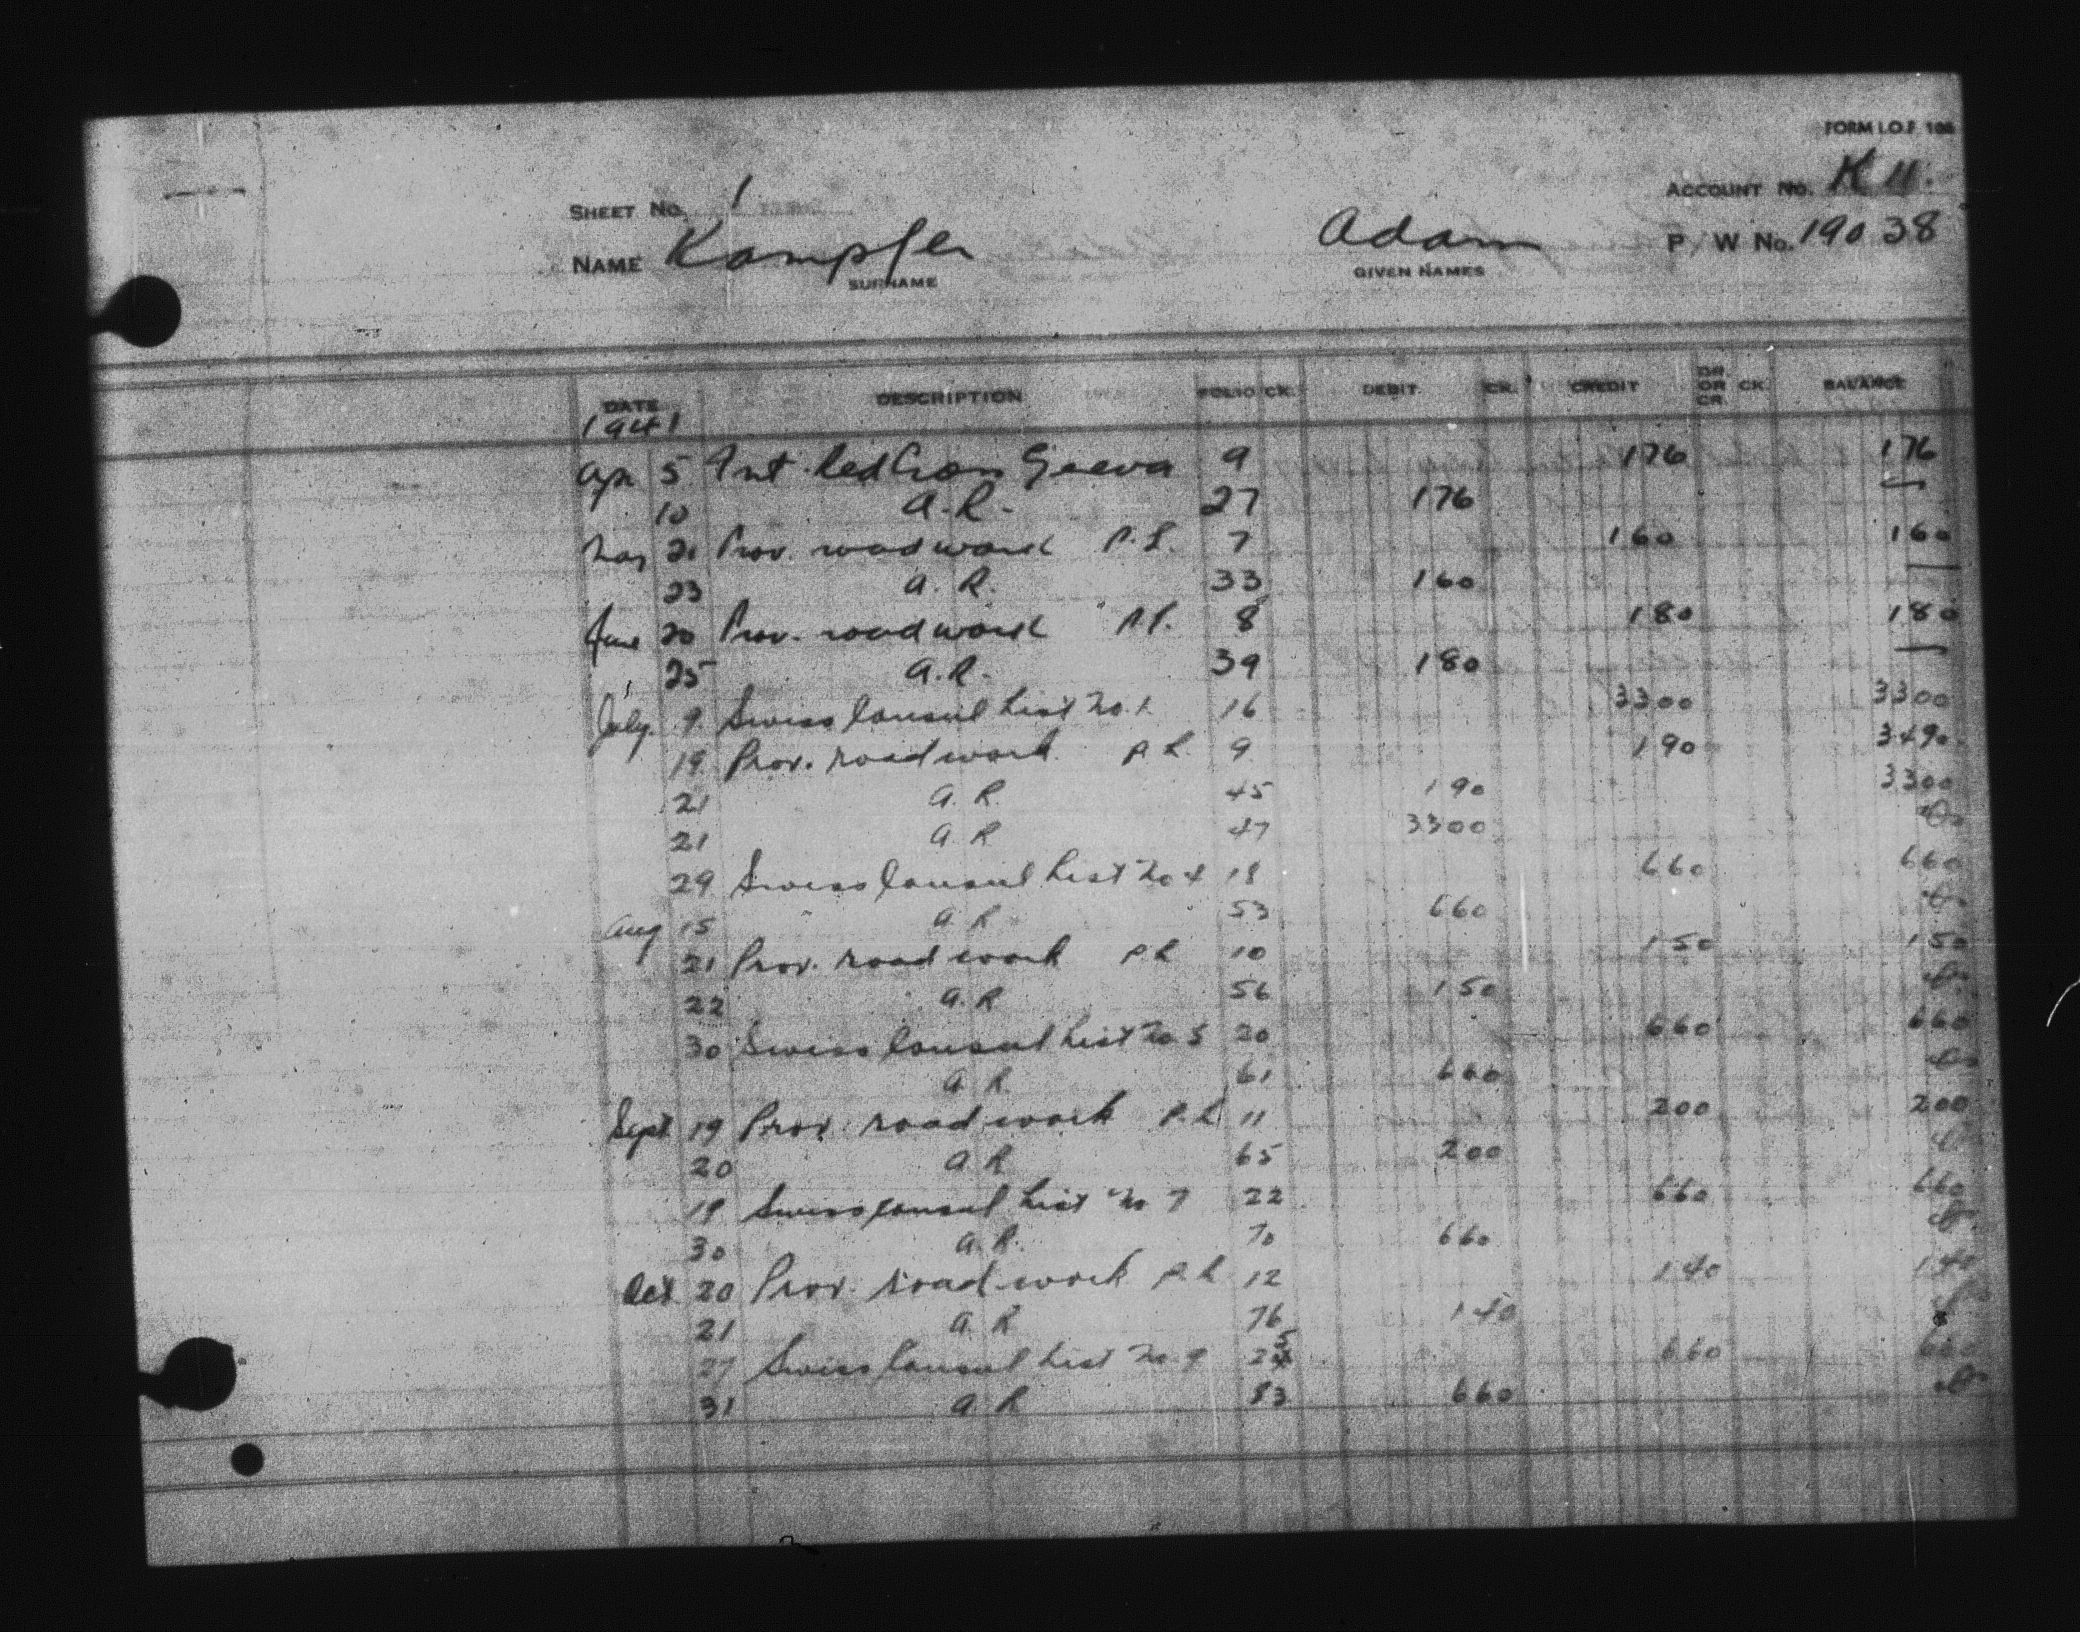 FORM I.O.F. 108
SHEET No. 1 ACCOUNT No. K 11.
NAME Kampfer Adam P/W No. 19038
SURNAME GIVEN NAMES
DATE DESCRIPTION FOLIO CK. DEBIT CK. CREDIT DR. OR CR. CK. BALANCE
1941
Apr 5 Int. Red Cross Geneva 9 176 176
10 A.R. 27 176 —
May 21 Prov. road work P.L. 7 160 160
23 A.R. 33 160 —
June 20 Prov. road work P.L. 8 180 180
25 A.R. 39 180 —
July 9 Swiss Consul List No. 1 16 3300 3300
19 Prov. road work P L 9 190 3490
21 A.R. 45 190 3300
21 A R 47 3300
29 Swiss Consul List No 4 18 660 660
Aug 15 A R 53 660
21 Prov. road work P L 10 150 150
22 A.R 56 150
30 Swiss Consul List No. 5 20 660 660
A R 61 660
Sept 19 Prov. road work P.L 11 200 200
20 A R 65 200
19 Swiss Consul List No 7 22 660 660
30 A.R. 70 660
Oct 20 Prov. road work P.L 12 140 140
21 A. R 76 140
27 Swiss Consul List No. 9 25 660 660
31 A R 83 660